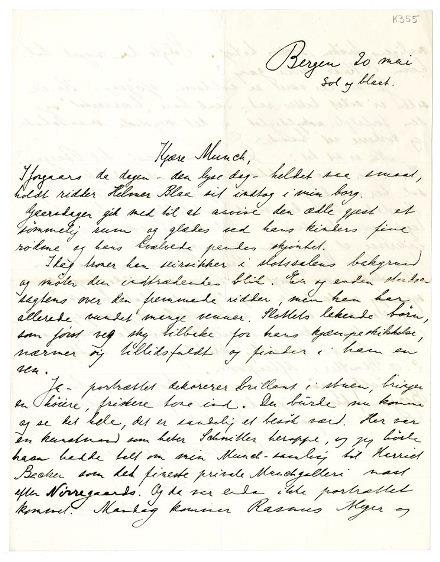 K355
Bergen 20 mai
Sol og blaat.
Kjære Munch,
Iforgaars da dagen - den lyse dag - heldet saa smaat,
holdt ridder Helmer Blaa sit indtog i min borg.
Gaarsdagen gik med til at anvise den ædle gjest et
sømmelig rum og glædes ved hans kinders fine
rødme og hans pandes skjønhet.
Idag troner han seirsikker i slotssalens bakgrund
og møter den indtrædendes blik. Er og enden
over den fremmede ridder, men han har
allerede vundet mange venner. Slottets lekende børn,
som først veg sky tilbake for hans kjæmpeskikkelse,
nærmer sig tillidsfuldt og finder i ham en
ven.
Ja - portrættet dekorerer brillant i stuen, bringer
en høiere, friere tone ind. Du burde nu komme
og se det hele, det er sandelig et besøk værd. Her var
en kunstmand som heter Schnitler heroppe, og jeg hørte
han hadde talt om min Munch-samling til Harriet
Backer som det fineste private Munchgalleri næst
efter Nörregaards. Og da var enda ikke portrættet
kommet. Mandag kommer Rasmus Meyer og